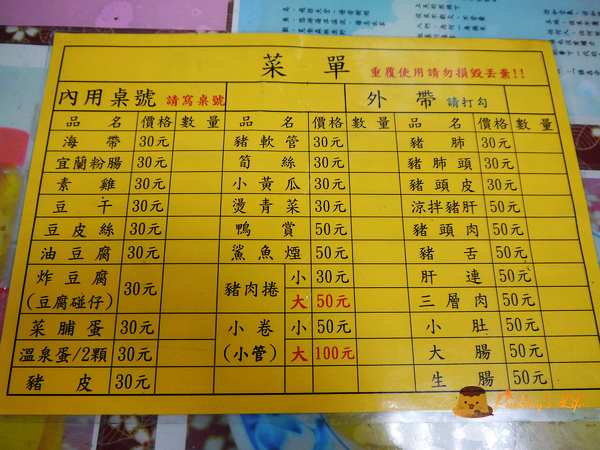 菜 單 重覆使用請勿損毀丟棄!!
內用桌號 請寫桌號 外 帶 請打勾
品 名 價格 數 量 品 名 價格 數 量 品 名 價格 數 量
海 帶 30元 豬軟管 30元 豬 肺 30元
宜蘭粉腸 30元 筍 絲 30元 豬肺頭 30元
素 雞 30元 小黃瓜 30元 豬頭皮 30元
豆 干 30元 燙青菜 30元 涼拌豬肝 50元
豆皮絲 30元 鴨 賞 50元 豬頭肉 50元
油豆腐 30元 鯊魚煙 50元 豬 舌 50元
炸豆腐 (豆腐碰仔) 30元 豬肉捲 小 30元 肝 連 50元
大 50元 三層肉 50元
菜脯蛋 30元 小 卷 (小管) 小 50元 小 肚 50元
溫泉蛋/2顆 30元 大 100元 大 腸 50元
豬 皮 30元 生 腸 50元
Pudding's Life